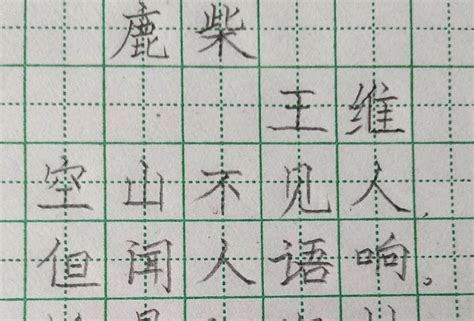 鹿柴
王维
空山不见人,
但闻人语响。